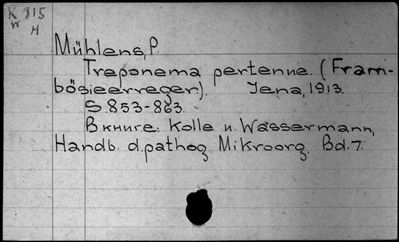 K 815
W H
Mühlens, P.
Treponema pertenue. (Fram-
bösieerreger). Jena, 1913.
S. 853-863.
В книге: Kolle и. Wassermann,
Handb. d. pathog. Mikroorg. Bd. 7.